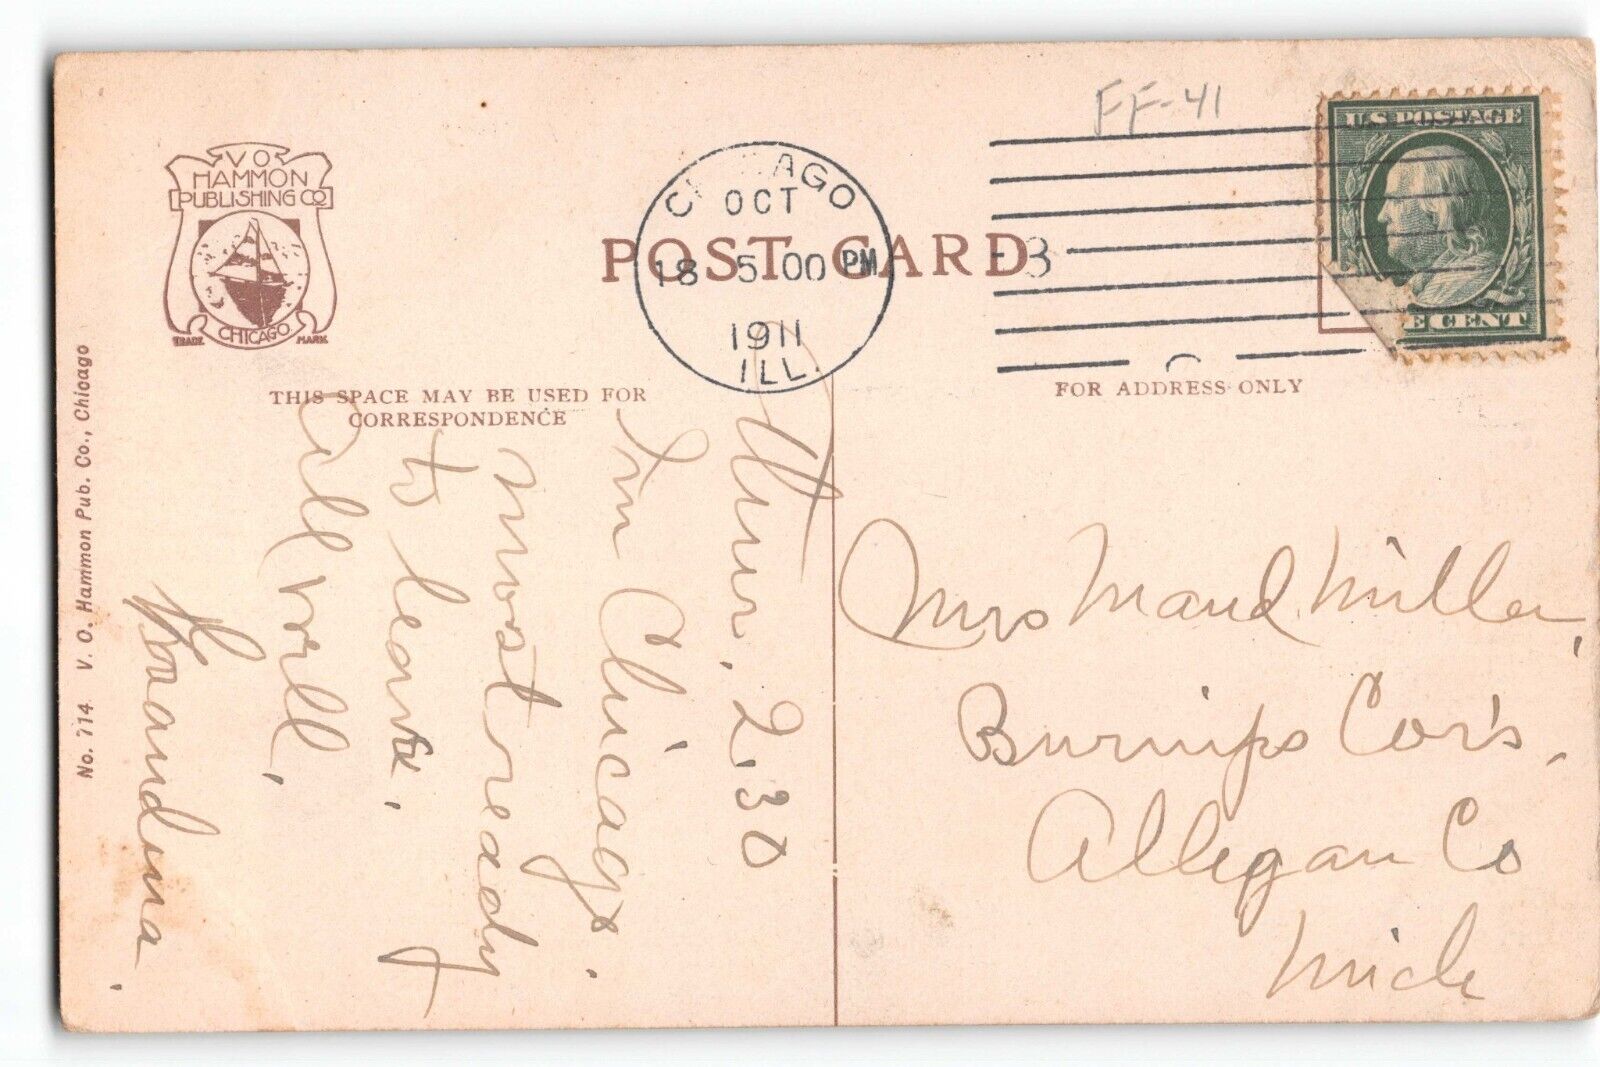 V O
HAMMON
PUBLISHING CO
CHICAGO
TRADE MARK
THIS SPACE MAY BE USED FOR
CORRESPONDENCE
No. 714 V. O. Hammon Pub. Co., Chicago
POST CARD
CHICAGO
OCT
18 5 00 PM
1911
ILL.
3
FF-41
U.S. POSTAGE
E CENT
FOR ADDRESS ONLY
Thur. 2.30
Im Chicago.
most ready
to leave.
all well.
Mrs Maud Miller,
Burnips Cor's.
Allegan Co
Mich